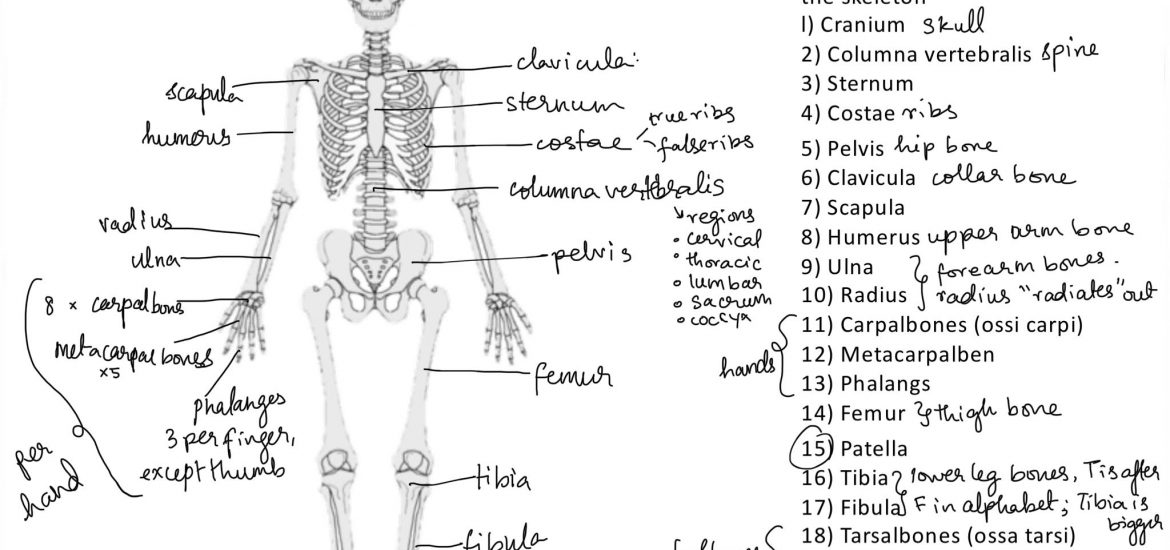 the skeleton
l) Cranium skull
2) Columna vertebralis spine
3) Sternum
4) Costae ribs
5) Pelvis hip bone
6) Clavicula collar bone
7) Scapula
8) Humerus upper arm bone
9) Ulna } forearm bones.
10) Radius } radius "radiates" out
11) Carpalbones (ossi carpi)
12) Metacarpalben
13) Phalangs
hands
14) Femur } thigh bone
15) Patella
16) Tibia } lower leg bones, T is after
17) Fibula } F in alphabet; Tibia is
bigger
18) Tarsalbones (ossa tarsi)
scapula
humerus
radius
ulna
8 × carpalbones
metacarpal bones
×5
phalanges
3 per finger,
except thumb
per
hand
clavicula
sternum
costae
true ribs
false ribs
columna vertebralis
↓ regions
• cervical
• thoracic
• lumbar
• sacrum
• coccyx
pelvis
femur
tibia
fibula